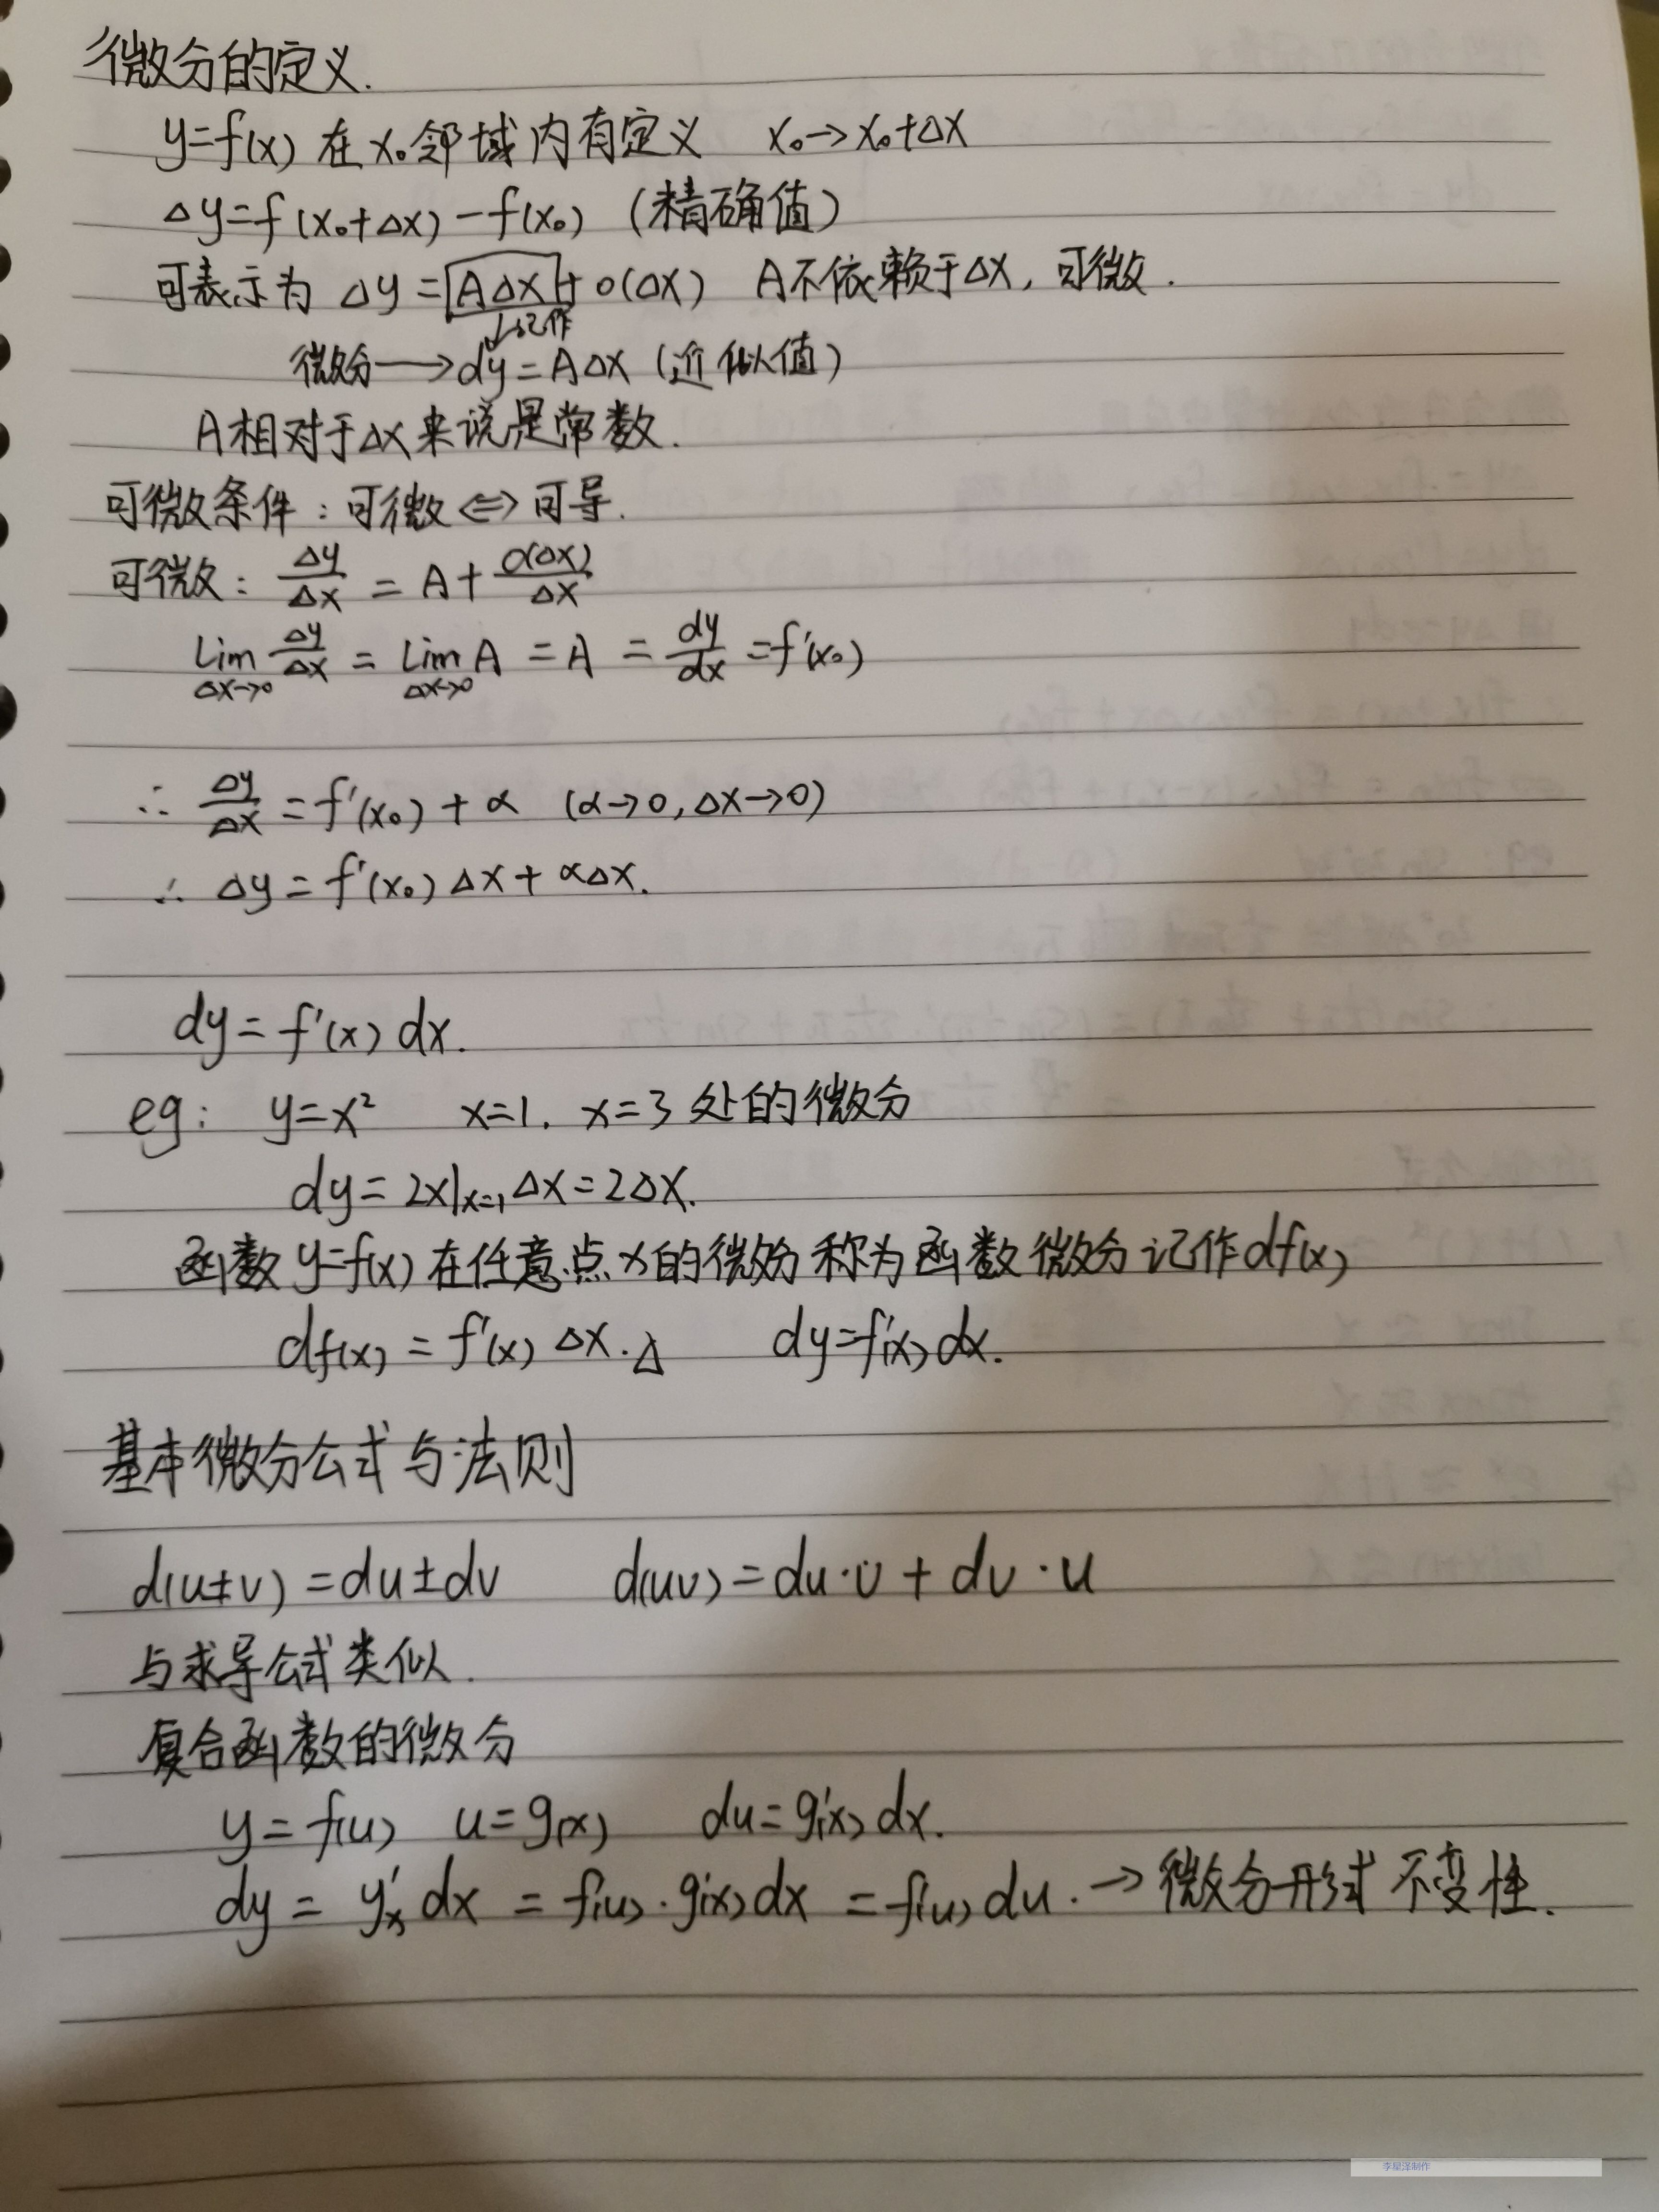 微分的定义.
y=f(x) 在 x₀ 邻域内有定义 x₀→x₀+Δx
Δy=f(x₀+Δx)-f(x₀) (精确值)
可表示为 Δy=AΔx+o(Δx) A不依赖于Δx, 可微.
↓记作
微分→dy=AΔx (近似值)
A相对于Δx来说是常数.
可微条件:可微⇔可导.
可微: Δy/Δx = A + o(Δx)/Δx
lim Δx→0 Δy/Δx = lim Δx→0 A = A = dy/dx = f'(x₀)
∴ Δy/Δx = f'(x₀) + α (α→0, Δx→0)
∴ Δy = f'(x₀)Δx + αΔx.
dy = f'(x) dx.
eg: y=x² x=1. x=3 处的微分
dy = 2x|x=1 Δx = 2Δx.
函数 y=f(x) 在任意点x的微分称为函数微分记作df(x)
df(x) = f'(x) Δx. Δ dy=f'(x)dx.
基本微分公式与法则
d(u±v)=du±dv d(uv)=du·v+dv·u
与求导公式类似.
复合函数的微分
y=f(u) u=g(x) du=g'(x)dx.
dy = y'x dx = f'(u)·g'(x)dx = f'(u)du.→微分形式不变性.
李星泽制作